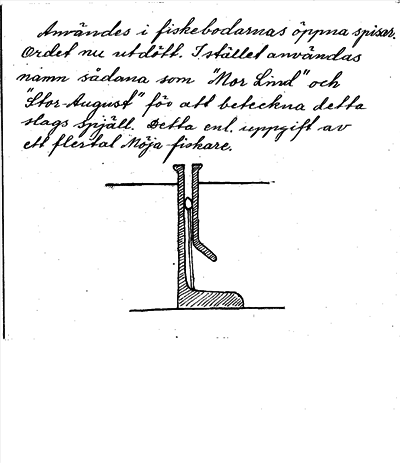 Användes i fiskebodarnas öppna spisar.
Ordet nu utdött. I stället användas
namn sådana som "Mor Lind" och
"Stor-August" för att beteckna detta
slags spjäll. Detta enl. uppgift av
ett flertal Möja fiskare.